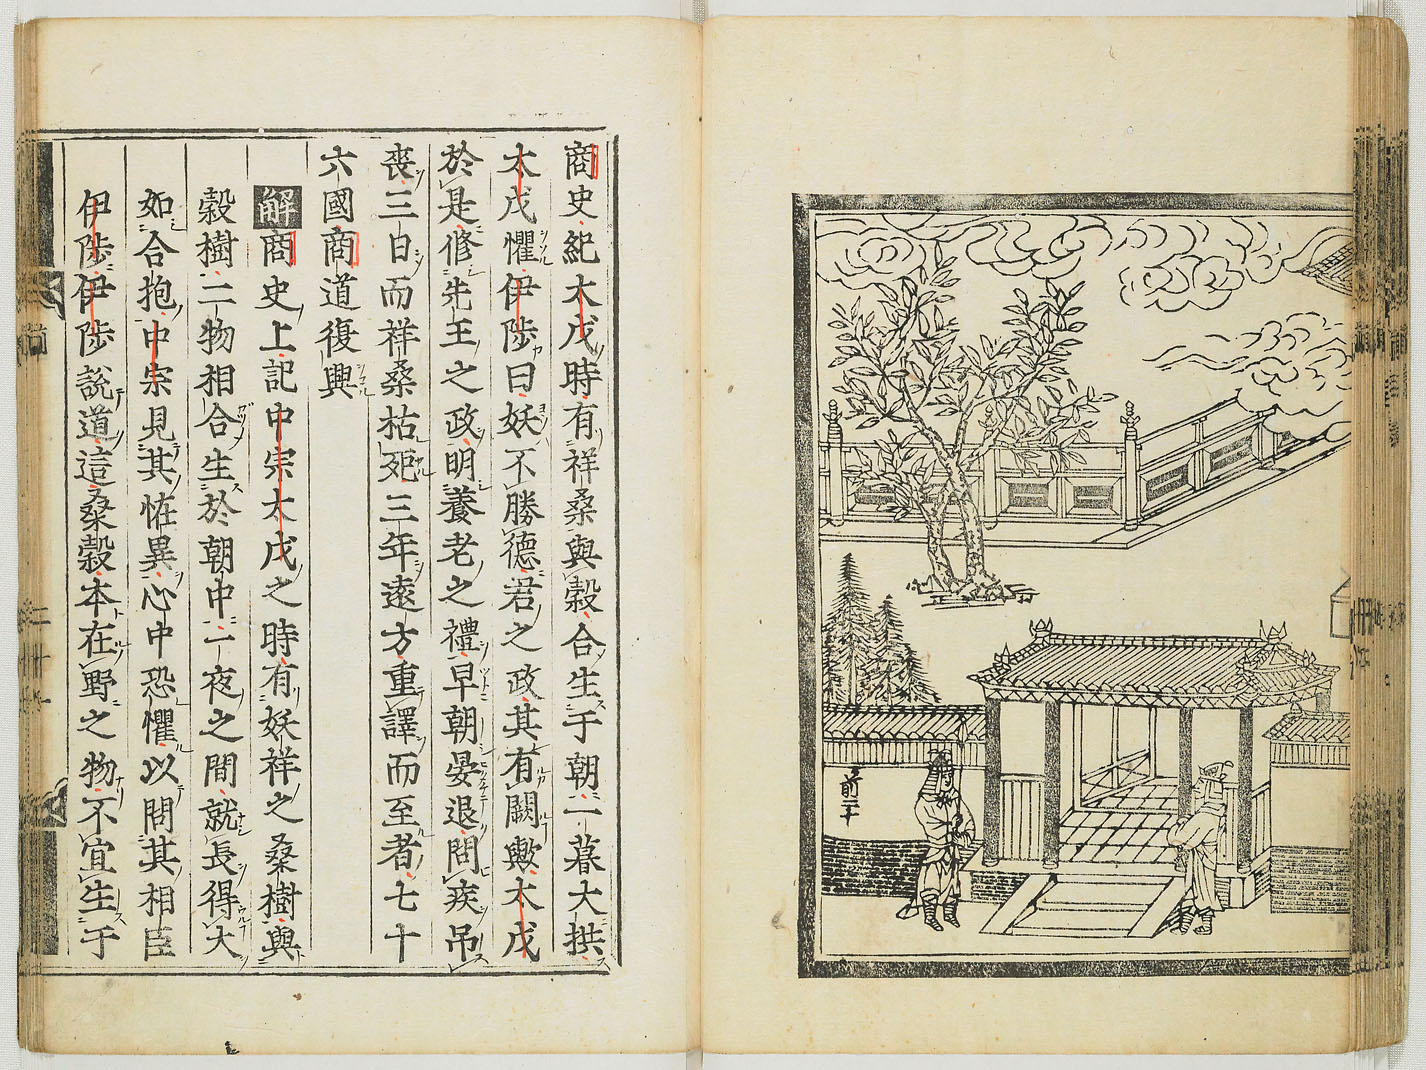 前二十
商史紀大戊時有祥桑與穀合生于朝一暮大拱
太戊懼伊陟曰妖不勝德君之政其有闕歟太戊
於是修先王之政明養老之禮早朝晏退問疾吊
喪三日而祥桑枯死三年遠方重譯而至者七十
六國商道復興
解商史上記中宗太戊之時有妖祥之桑樹與
穀樹二物相合生於朝中一夜之間就長得大
如合抱中宗見其恠異心中恐懼以問其相臣
伊陟伊陟說道這桑穀本在野之物不宜生于